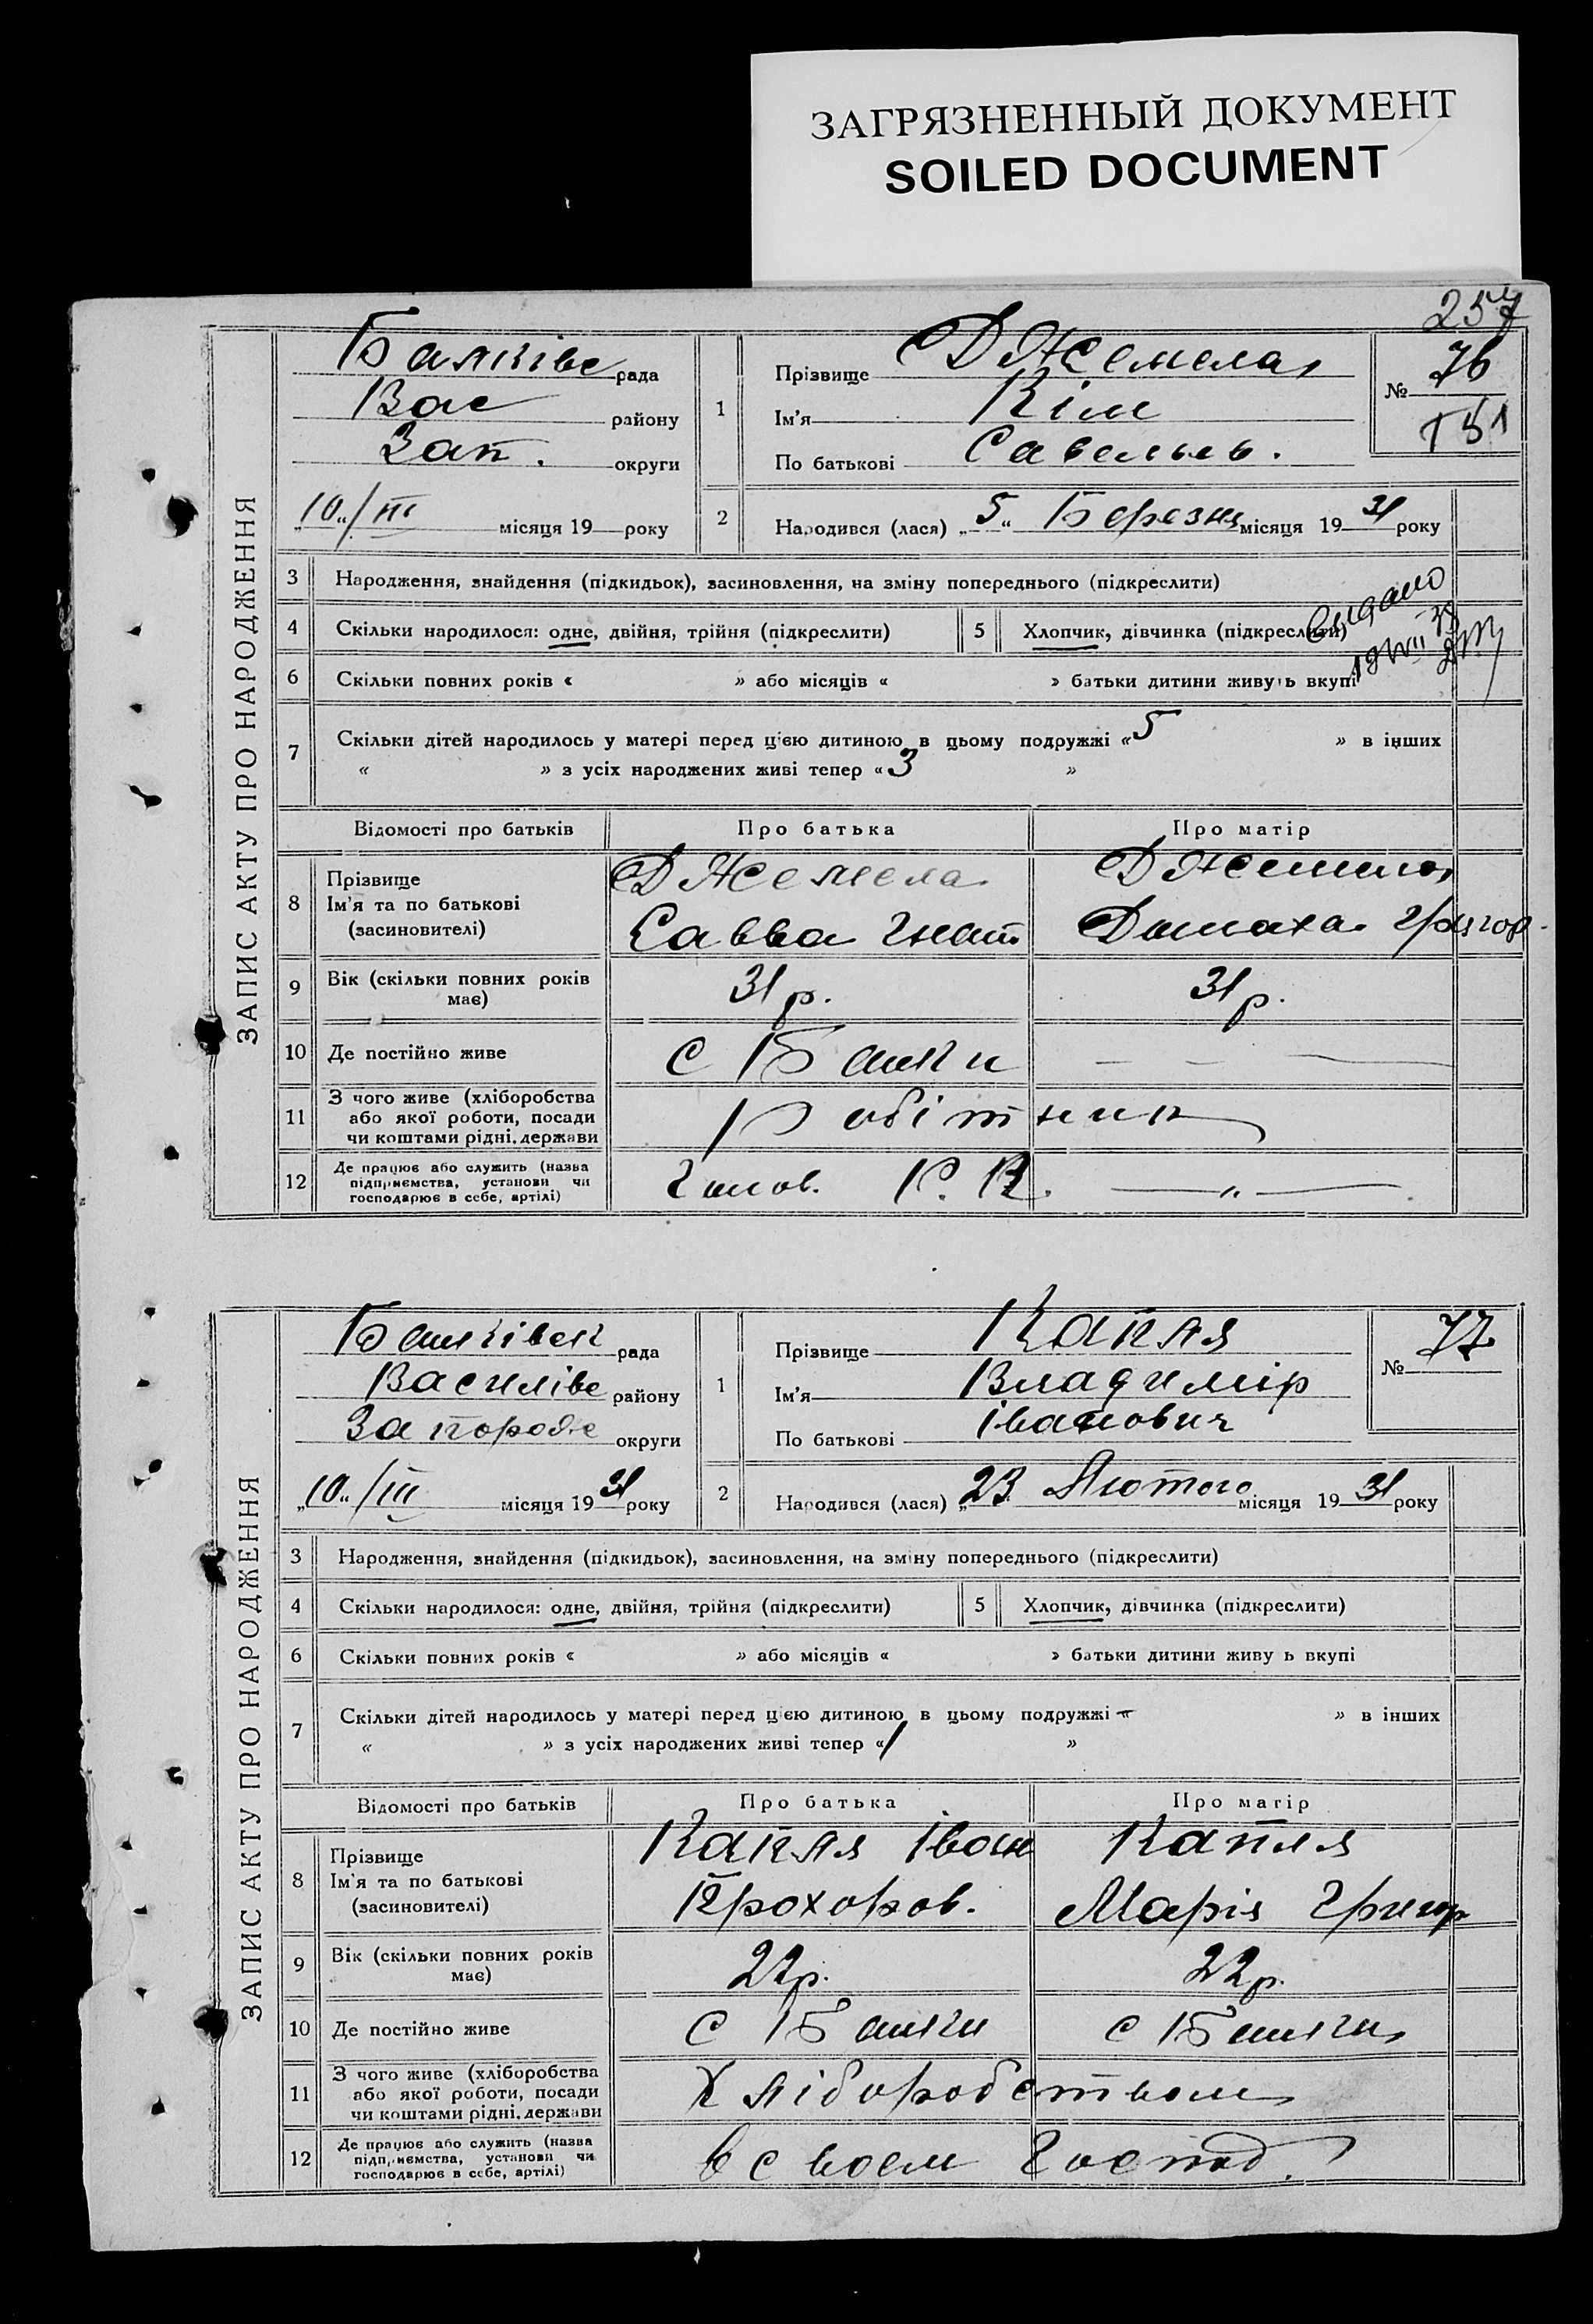 ЗАГРЯЗНЕННЫЙ ДОКУМЕНТ
SOILED DOCUMENT
257
ЗАПИС АКТУ ПРО НАРОДЖЕННЯ
Балківс рада
Вас району
Зап. округи
„10“/III місяця 19 року
1 Прізвище Джемела
Ім'я Кім
По батькові Савельев.
№ 76
151
2 Народився (лася) „5“ Березня місяця 1931 року
3 Народження, знайдення (підкидьок), засиновлення, на зміну попереднього (підкреслити)
4 Скільки народилося: одне, двійня, трійня (підкреслити) 5 Хлопчик, дівчинка (підкреслити)
6 Скільки повних років « » або місяців « » батьки дитини живуть вкупі
7 Скільки дітей народилось у матері перед цією дитиною в цьому подружжі «5 » в інших
« » з усіх народжених живі тепер «3 »
Відомості про батьків Про батька Про матір
8 Прізвище Ім'я та по батькові (засновителі)
Джемела Савва Гнат
Джемела Домаха Григор.
9 Вік (скільки повних років має) 31 р. 31 р.
10 Де постійно живе с Балки — —
11 З чого живе (хліборобства або якої роботи, посади чи коштами рідні, держави Робітник
12 Де працює або служить (назва підприємства, установи чи господарює в себе, артілі) Голов. —„—
ЗАПИС АКТУ ПРО НАРОДЖЕННЯ
Балківськ рада
Василівс району
Запорож округи
„10“/III місяця 1931 року
1 Прізвище Капля
Ім'я Владимір
По батькові Іванович
№ 77
2 Народився (лася) „23 Лютого місяця 1931 року
3 Народження, знайдення (підкидьок), засиновлення, на зміну попереднього (підкреслити)
4 Скільки народилося: одне, двійня, трійня (підкреслити) 5 Хлопчик, дівчинка (підкреслити)
6 Скільки повних років « » або місяців « » батьки дитини живу ь вкупі
7 Скільки дітей народилось у матері перед цією дитиною в цьому подружжі « » в інших
« » з усіх народжених живі тепер «1 »
Відомості про батьків Про батька Про матір
8 Прізвище Ім'я та по батькові (засиновителі)
Капля Іван Прохоров.
Капля Марія Григор
9 Вік (скільки повних років має) 22 р. 22 р.
10 Де постійно живе с Балки с Балки
11 З чого живе (хліборобства або якої роботи, посади чи коштами рідні, держави Хліборобством
12 Де працює або служить (назва підприємства, установи чи господарює в себе, артілі) в своєм Господ.